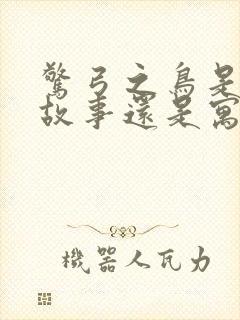 驚弓之鳥是
故事還是寓
機器人瓦力